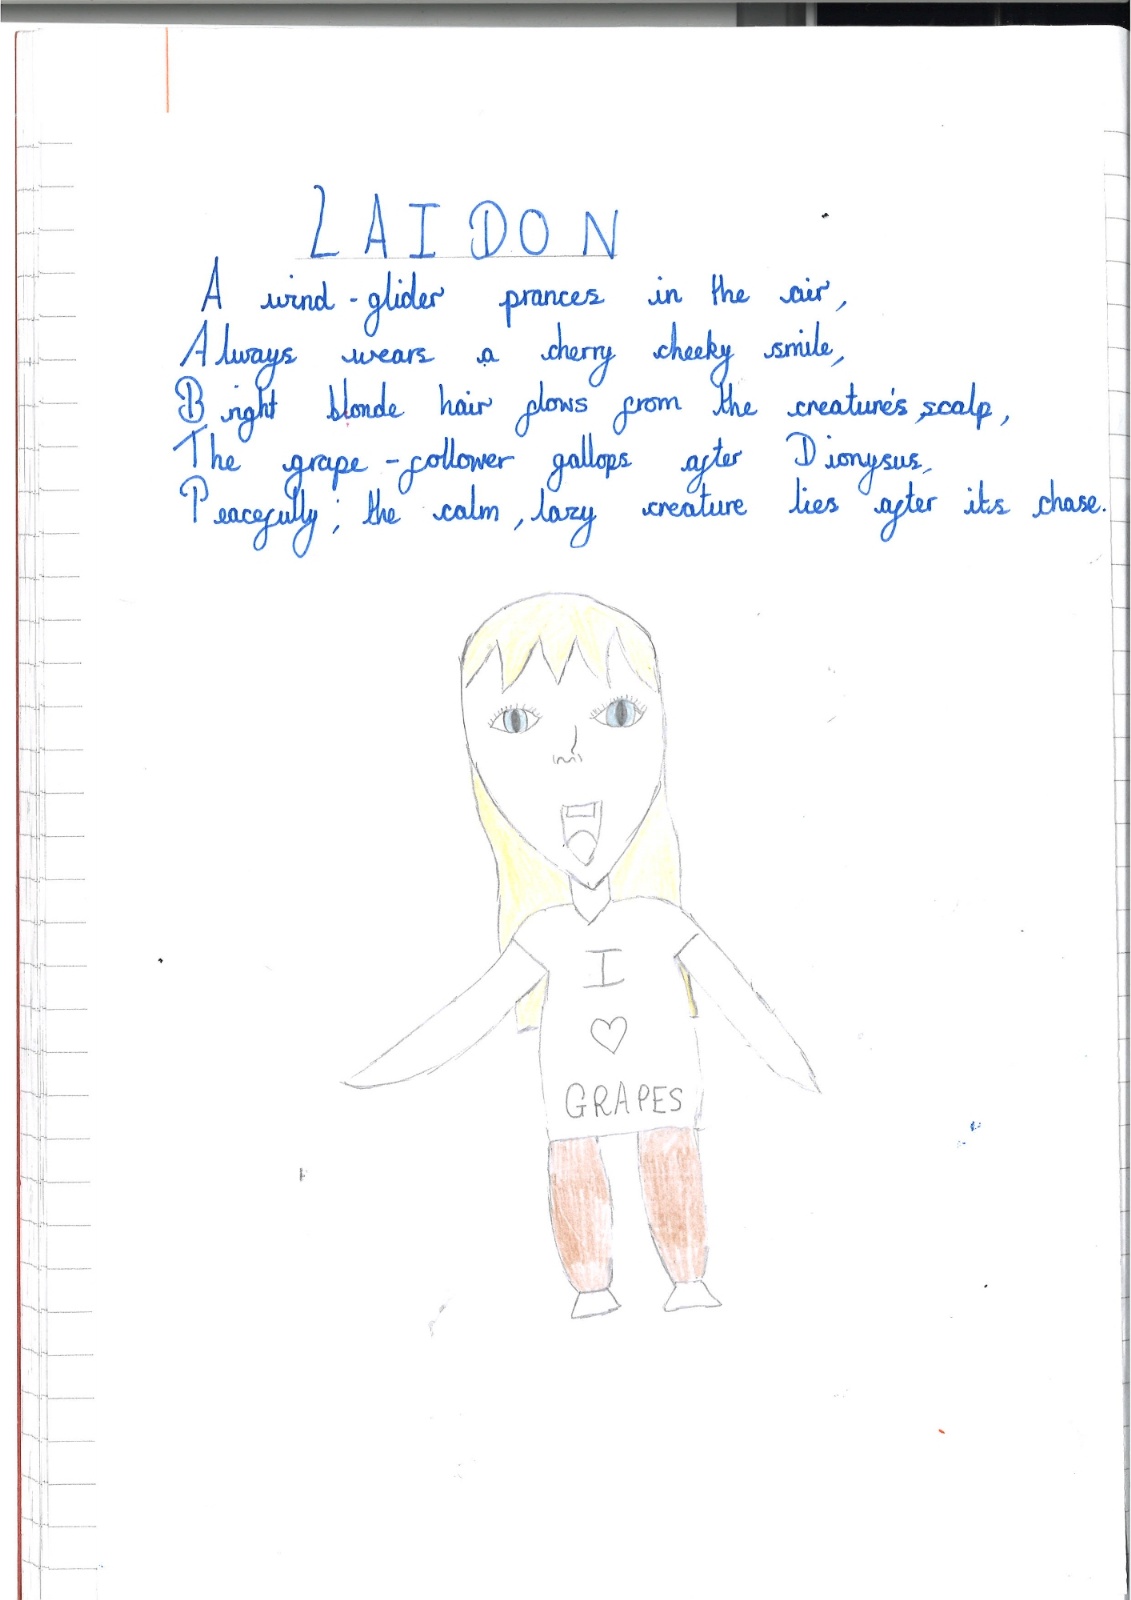 LAIDON
A wind-glider prances in the air,
Always wears a cherry cheeky smile,
Bright blonde hair flows from the creature's scalp,
The grape-follower gallops after Dionysus,
Peacefully; the calm, lazy creature lies after its chase.
I
♡
GRAPES